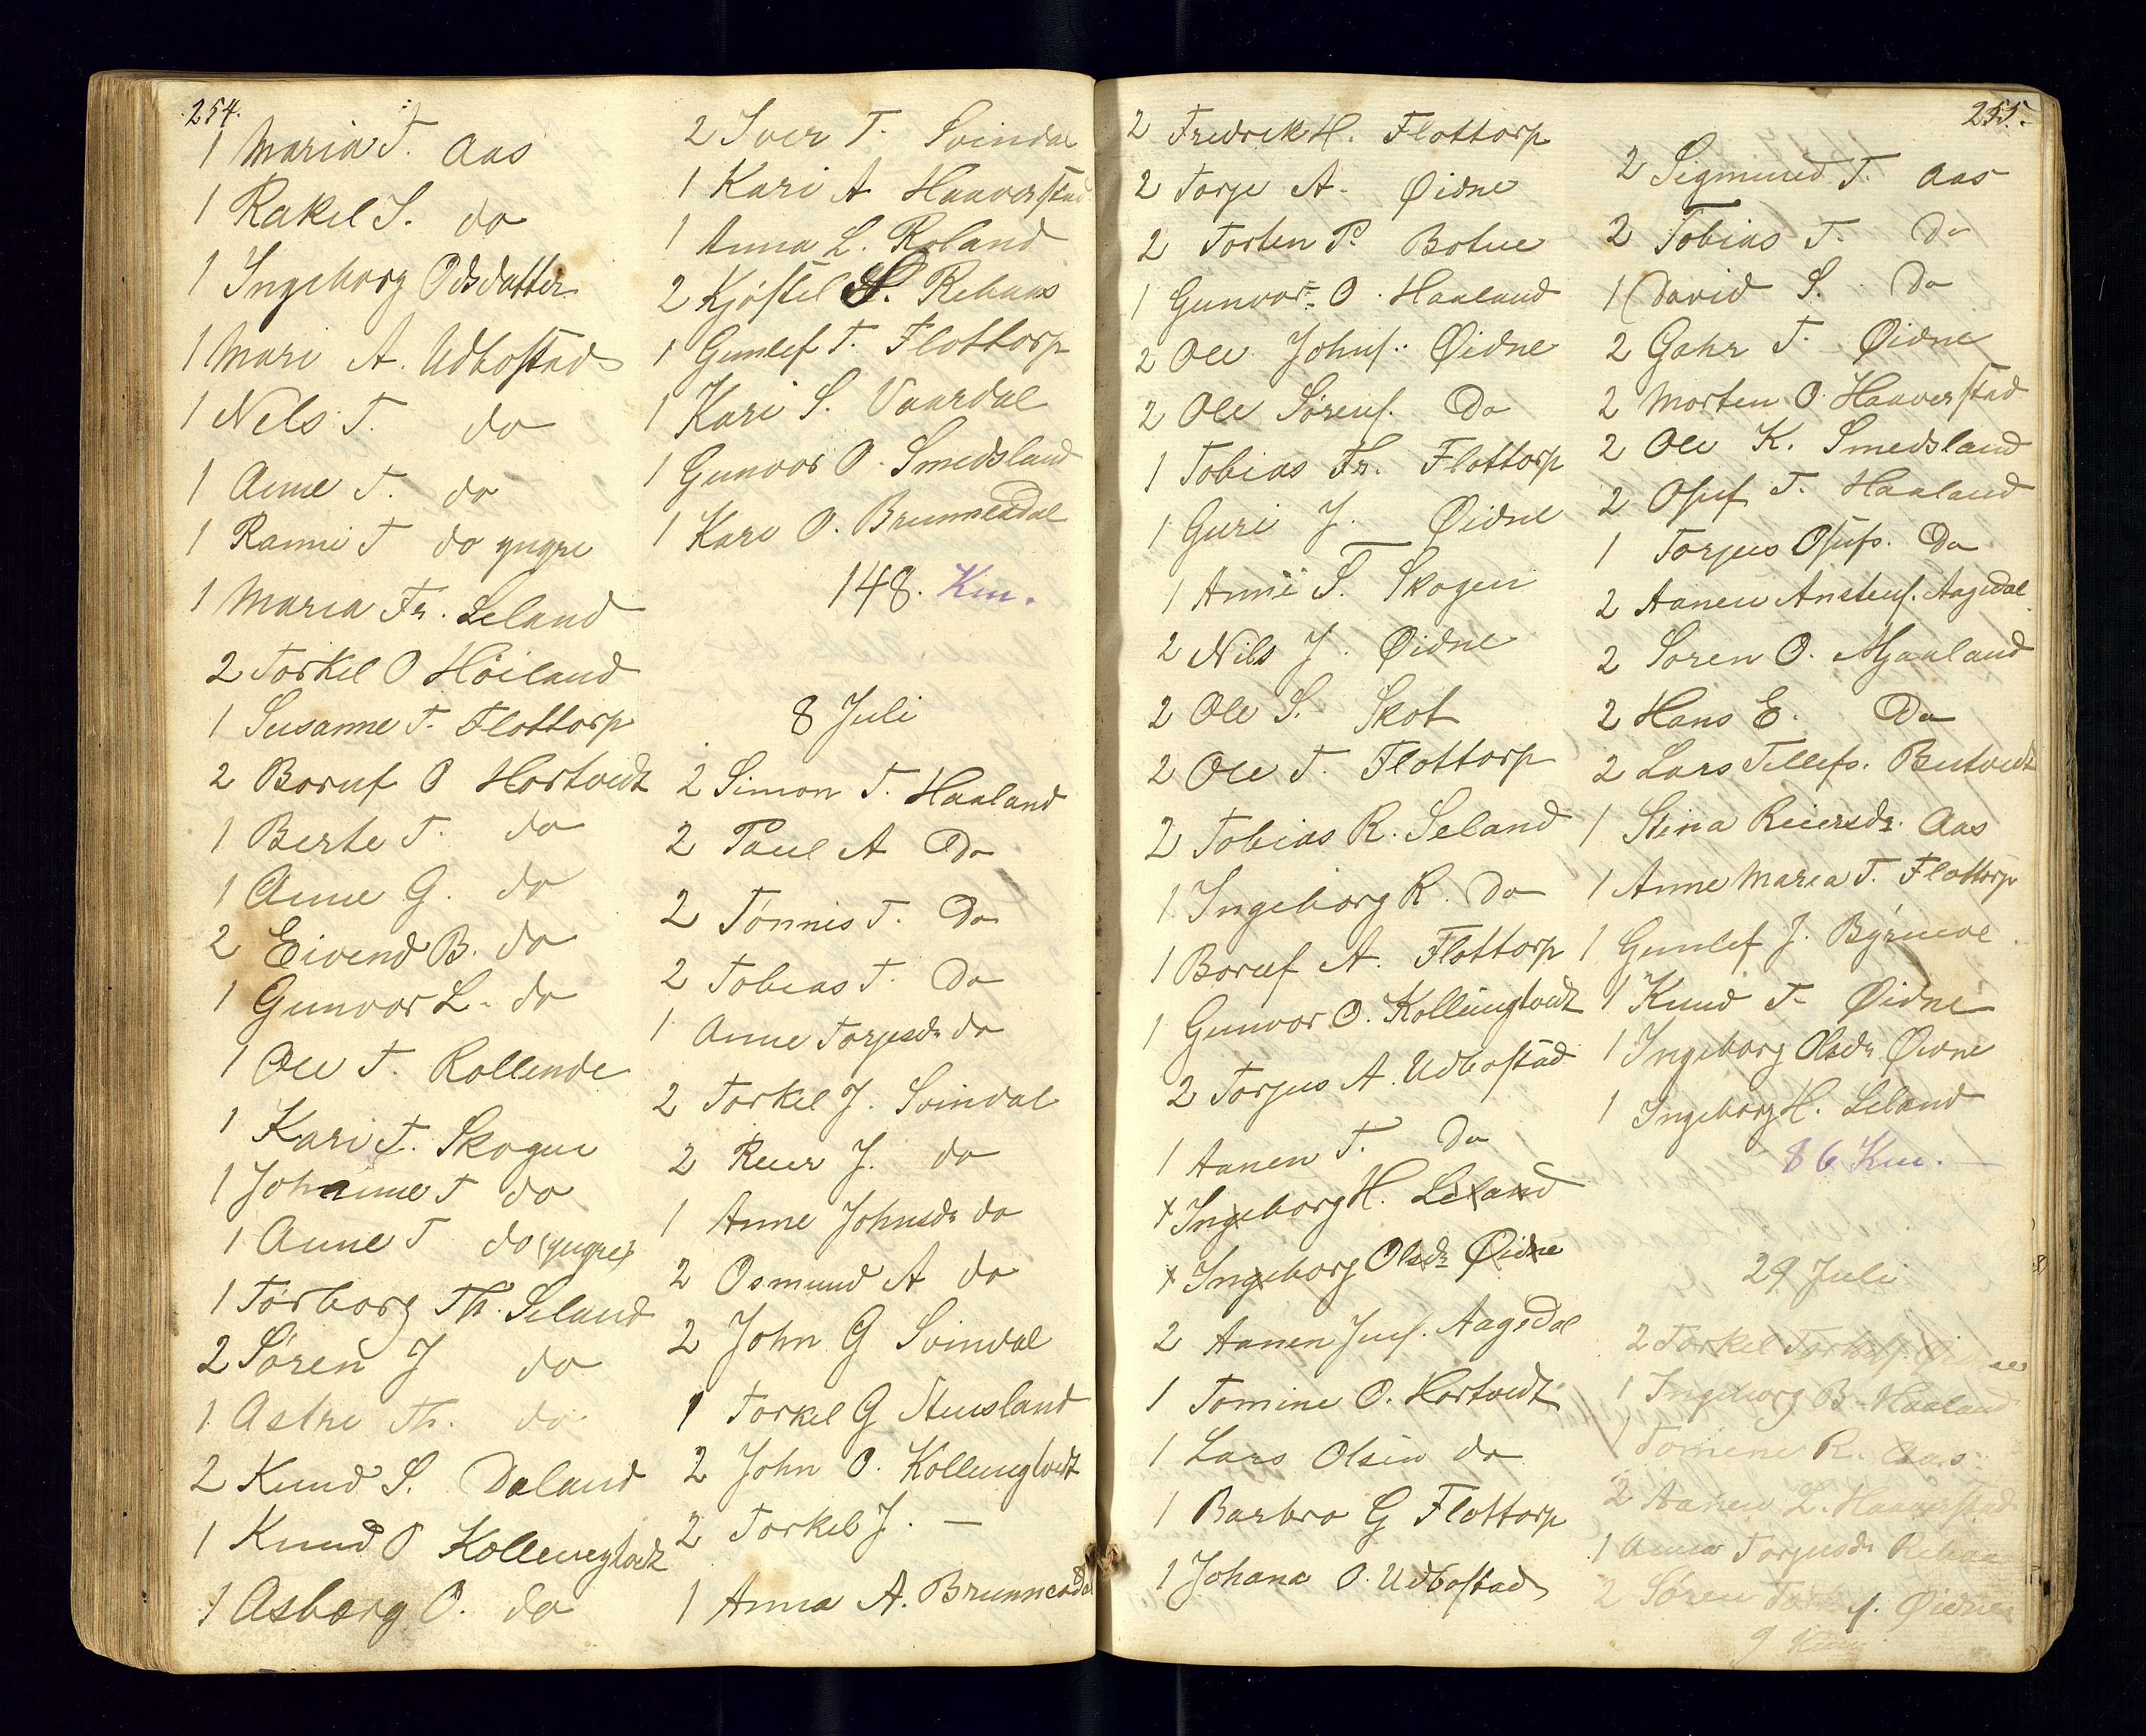 254.
1 Maria T. Aas
1 Rakel S. do
1 Ingeborg Odsdatter
1 Mari A. Udbostad
1 Nels T. do
1 Anne T. do
1 Ranni T do yngre
1 Maria Fr. Leland
2 Torkel O Høiland
1 Susanne T. Flottorp
2 Boruf O Hortvedt
1 Berte T. do
1 Anne G. do
2 Eivend B. do
1 Gunvor L. do
1 Ole T. Rollende
1 Kari T. Skogen
1 Johanne T do
1 Anne T do (yngre)
1 Torborg Th. Seland
2 Søren J do
1 Astri Th. do
2 Knud S. Daland
1 Knud O Kollungtvedt
1 Asborg O. do
2 Iver T. Svindal
1 Kari A Haaverstad
1 Anna L. Roland
2 Kjøstel S. Rebaas
1 Gunlef T. Flottorp
1 Kari S. Vaardal
1 Gunvor O. Smedsland
1 Kari O. Brunnesdal
148. Km.
8 Juli
2 Simon T. Haaland
2 Paul A Do
2 Tønnis T. Do
2 Tobias T. Do
1 Anne Torjusdr do
2 Torkel J. Svindal
2 Reier J. do
1 Anne Johnsdr do
2 Osmund A do
2 John G Svindal
1 Torkel G Stensland
2 John O. Kollungtvedt
2 Torkel J. —
1 Anna A. Brunnesdal
255.
2 Fredrik H. Flottorp
2 Torje A. Øidne
2 Torten P. Botne
1 Gunvor O. Haaland
2 Ole Johns. Øidne
2 Ole Sørens. Do
1 Tobias Fr. Flottorp
1 Guri J. Øidne
1 Anne T. Skogen
2 Nils J. Øidne
2 Ole S. Skot
2 Ole T. Flottorp
2 Tobias R. Seland
1 Ingeborg R. Do
1 Boruf A. Flottorp
1 Gunvor O. Kollungtvedt
2 Torjus A. Udbostad
1 Aanen T. Do
1 Ingeborg H. Leland
1 Ingeborg Olsdr Øidne
2 Aanen Juls. Aagedal
1 Tomine O. Hortvedt
1 Lars Olsen do
1 Barbro G Flottorp
1 Johana O. Udbostad
2 Sigmund T. Aas
2 Tobias T. Do
1 David S. Do
2 Gahr T. Øidne
2 Morten O. Haaverstad
2 Ole K. Smedsland
2 Osuf T. Haaland
1 Torjus Osufs. Do
2 Aanen Anstens. Aagedal
2 Søren O. Mjaaland
2 Hans E. Do
2 Lars Tellefs. Butvedt
1 Stina Reiersdr. Aas
1 Anne Maria T. Flottorp
1 Gunlef J.
1 Knud T. Øidne
1 Ingeborg Olsdr Øidne
1 Ingeborg H. Leland
86 Km. —
29 Juli
2 Torkel Torkels. Øidne
1 Ingeborg B. Haaland
1 Tomine R. Aas
2 Aanen L. Haaverstad
1 Anna Torjusdr Rebaas
2 Søren Øidne
9 Km